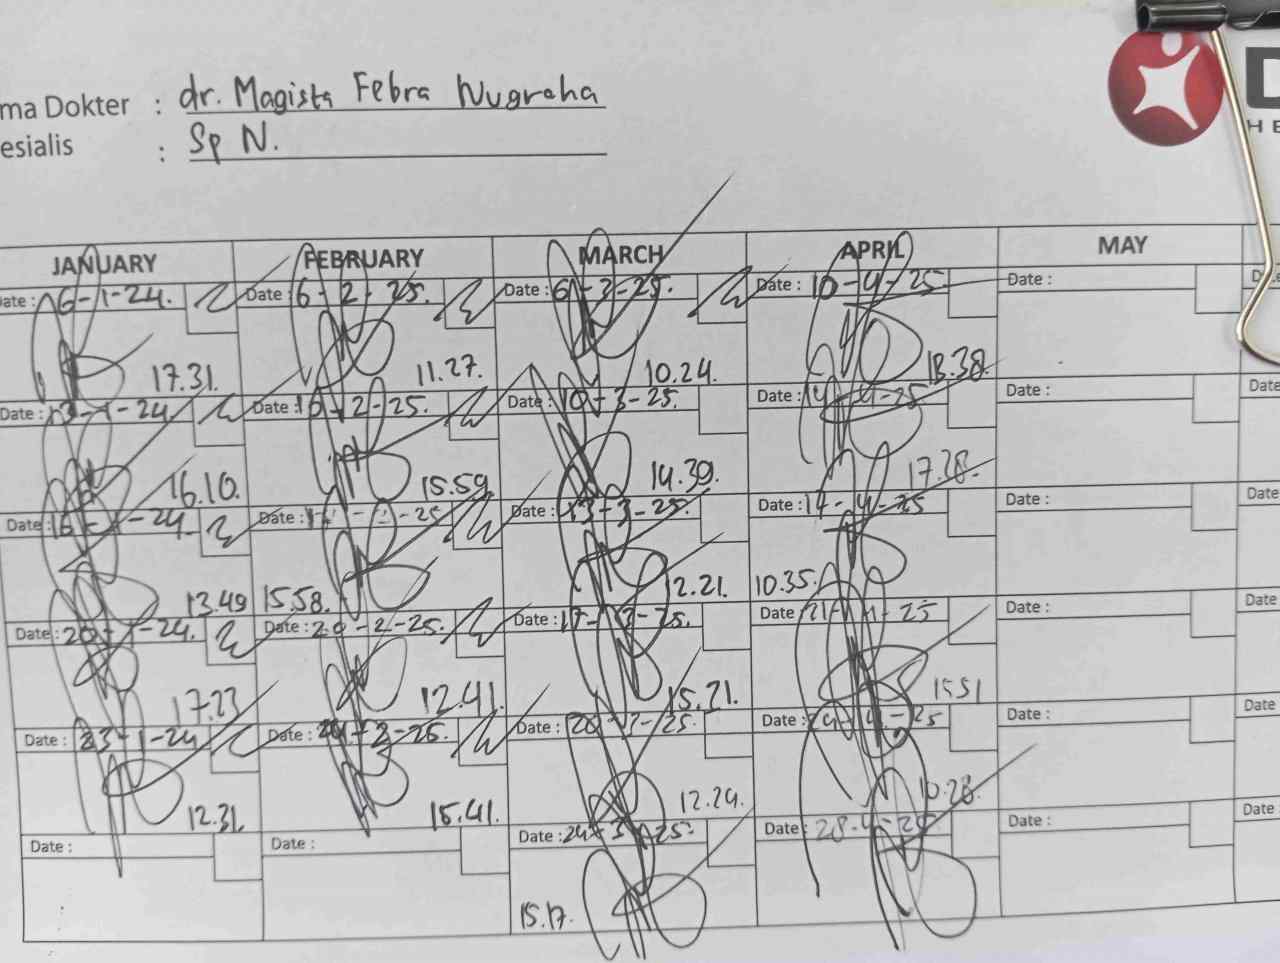 ma Dokter : dr. Magista Febra Nugraha
esialis : Sp N.
D
HE
JANUARY FEBRUARY MARCH APRIL MAY
ate : 6-1-24. Date : 6-2-25. Date : 6-3-25. Date : 10-4-25 Date : Da
17.31. 11.27. 10.24. 13.38.
Date : 13-1-24. Date : 10-2-25. Date : 10-3-25. Date : 14-4-25 Date : Date
16.10. 15.59 14.39. 17.28.
Date : 16-1-24. Date : -25 Date : 13-3-25. Date : 17-4-25 Date : Date
13.49 15.58. 12.21. 10.35.
Date : 20-1-24. Date : 20-2-25. Date : 17-3-25. Date : 21-4-25 Date : Date
17.23 12.41. 15.21. 1551
Date : 23-1-24 Date : 24-2-25. Date : 20-3-25. Date : 24-4-25 Date : Date
12.31. 15.41. 12.29. 10.28.
Date : Date : Date : 24-3-25. Date : 28-4-25. Date : Date
15.17.